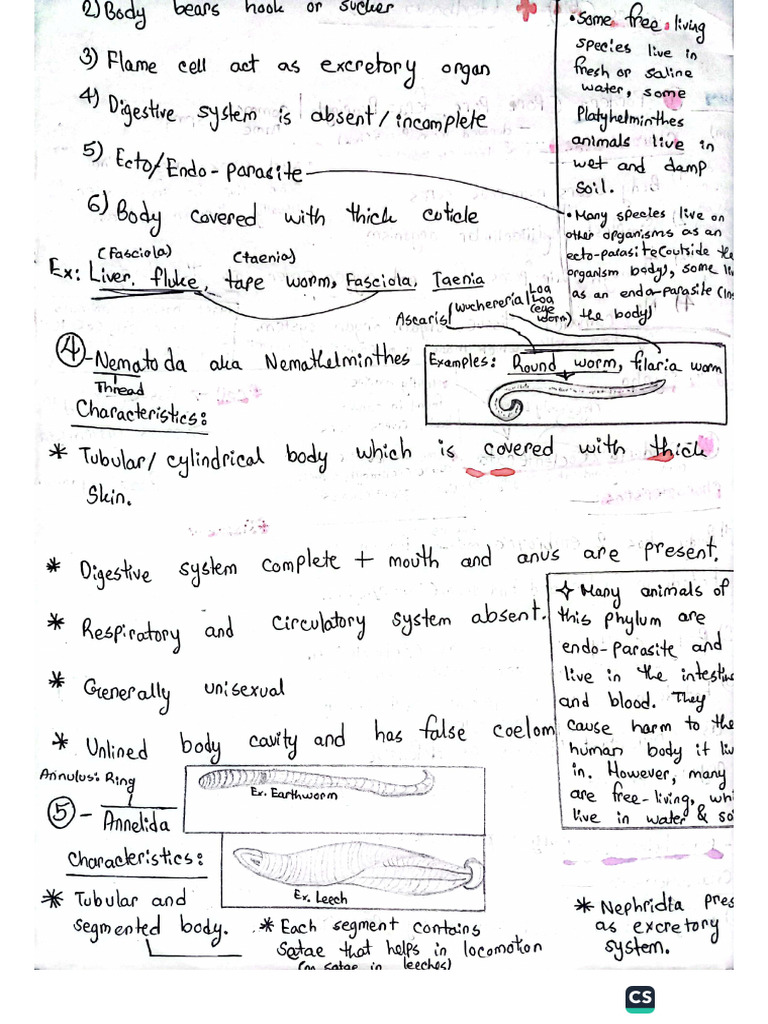 2) Body bears hook or sucker
3) Flame cell act as excretory organ
4) Digestive system is absent/incomplete
5) Ecto/Endo-parasite
6) Body covered with thick cuticle
(Fasciola) (taenia)
Ex: Liver fluke, tape worm, Fasciola, Taenia
• Some free living
species live in
fresh or saline
water, some
Platyhelminthes
animals live in
wet and damp
soil.
• Many species live on
other organisms as an
ecto-parasite (outside the
organism body), some li
as an endo-parasite (in
the body)
Ascaris Wuchereria/Loa
Loa
(eye
worm)
④-Nematoda aka Nemathelminthes
Thread
Examples: Round worm, filaria worm
Characteristics:
* Tubular/cylindrical body which is covered with thick
skin.
* Digestive system complete + mouth and anus are present.
* Respiratory and circulatory system absent.
* Generally unisexual
* Unlined body cavity and has false coelom
✧ Many animals of
this phylum are
endo-parasite and
live in the intestin
and blood. They
cause harm to the
human body it liv
in. However, many
are free-living, whi
live in water & so
Annulus: Ring
⑤- Annelida
Ex. Earthworm
Ex. Leech
Characteristics:
* Tubular and
segmented body.
* Each segment contains
Satae that helps in locomotion
(no satae in leeches)
* Nephridia pres
as excretory
system.
CS